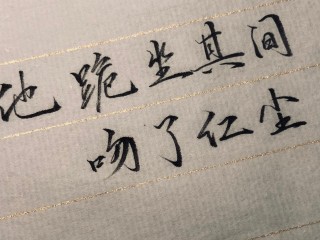 他跪坐其间
吻了红尘